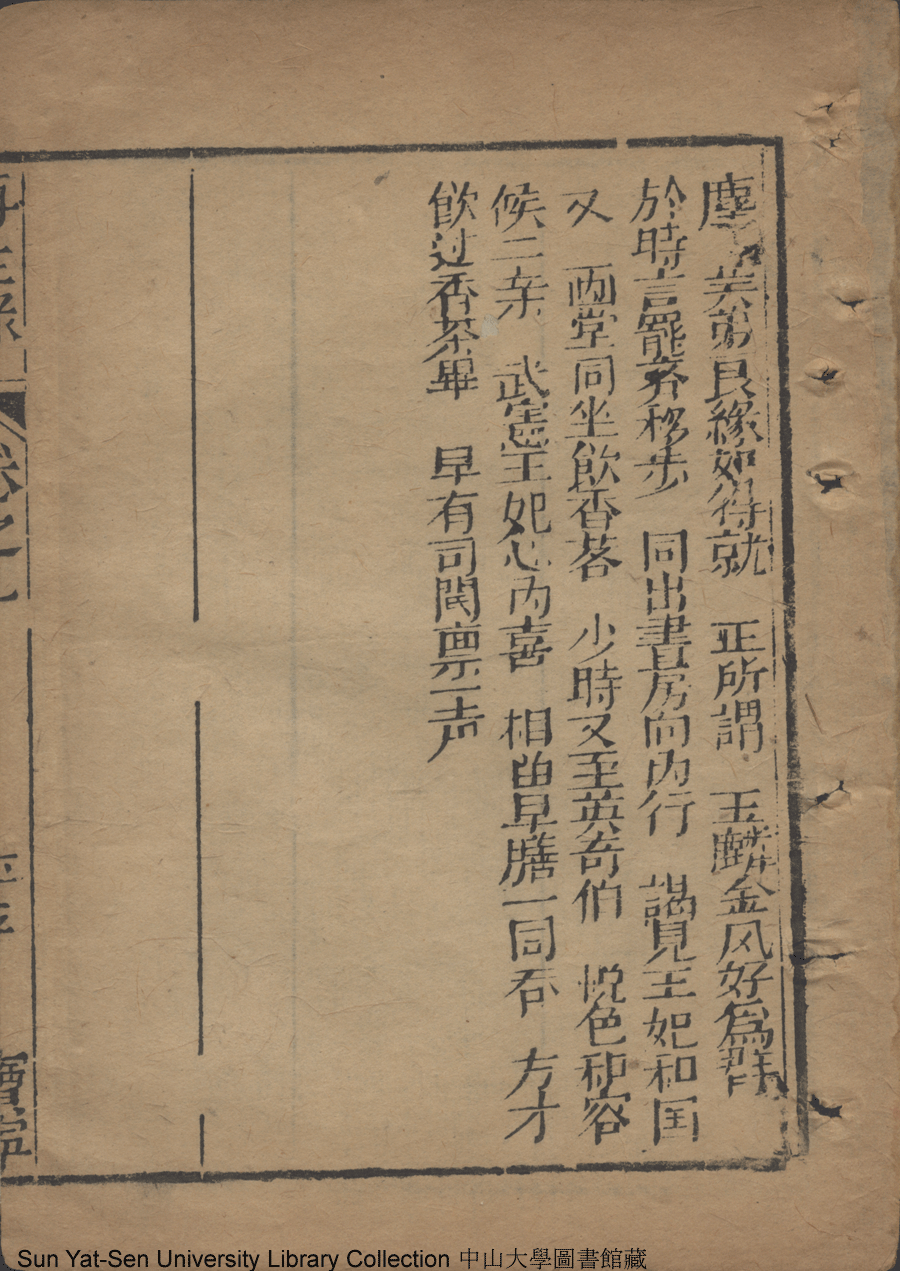 塵 美弟良緣如得就 正所謂 玉麟金凤好為群
於時言罷齐移步 同出書房向內行 謁見王妃和国
又 両堂同坐飲香茗 少時又至英奇伯 悅色和容
候二亲 武憲王妃心內喜 相留早膳一同吞 方才
飲过香茶畢 早有司閽禀一声
再生緣 卷之
Sun Yat-Sen University Library Collection 中山大學圖書館藏